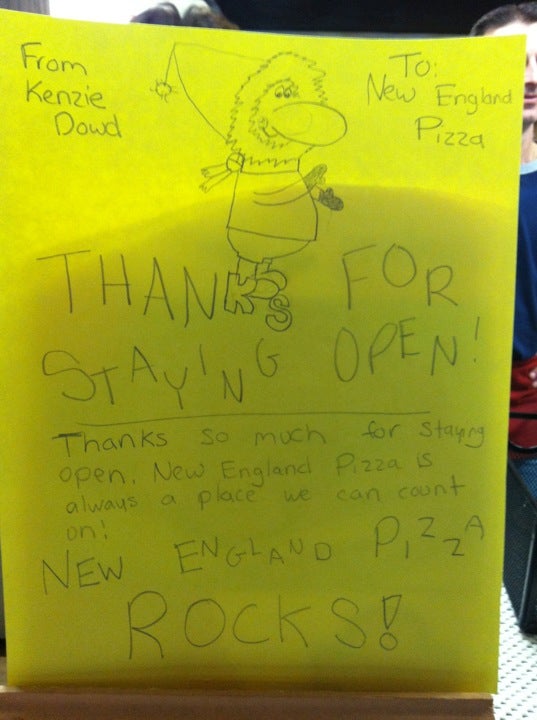 From
Kenzie
Dowd
To:
New England
Pizza
THANKS FOR
STAYING OPEN!
Thanks so much for staying
open. New England Pizza is
always a place we can count
on!
NEW ENGLAND PIZZA
ROCKS!